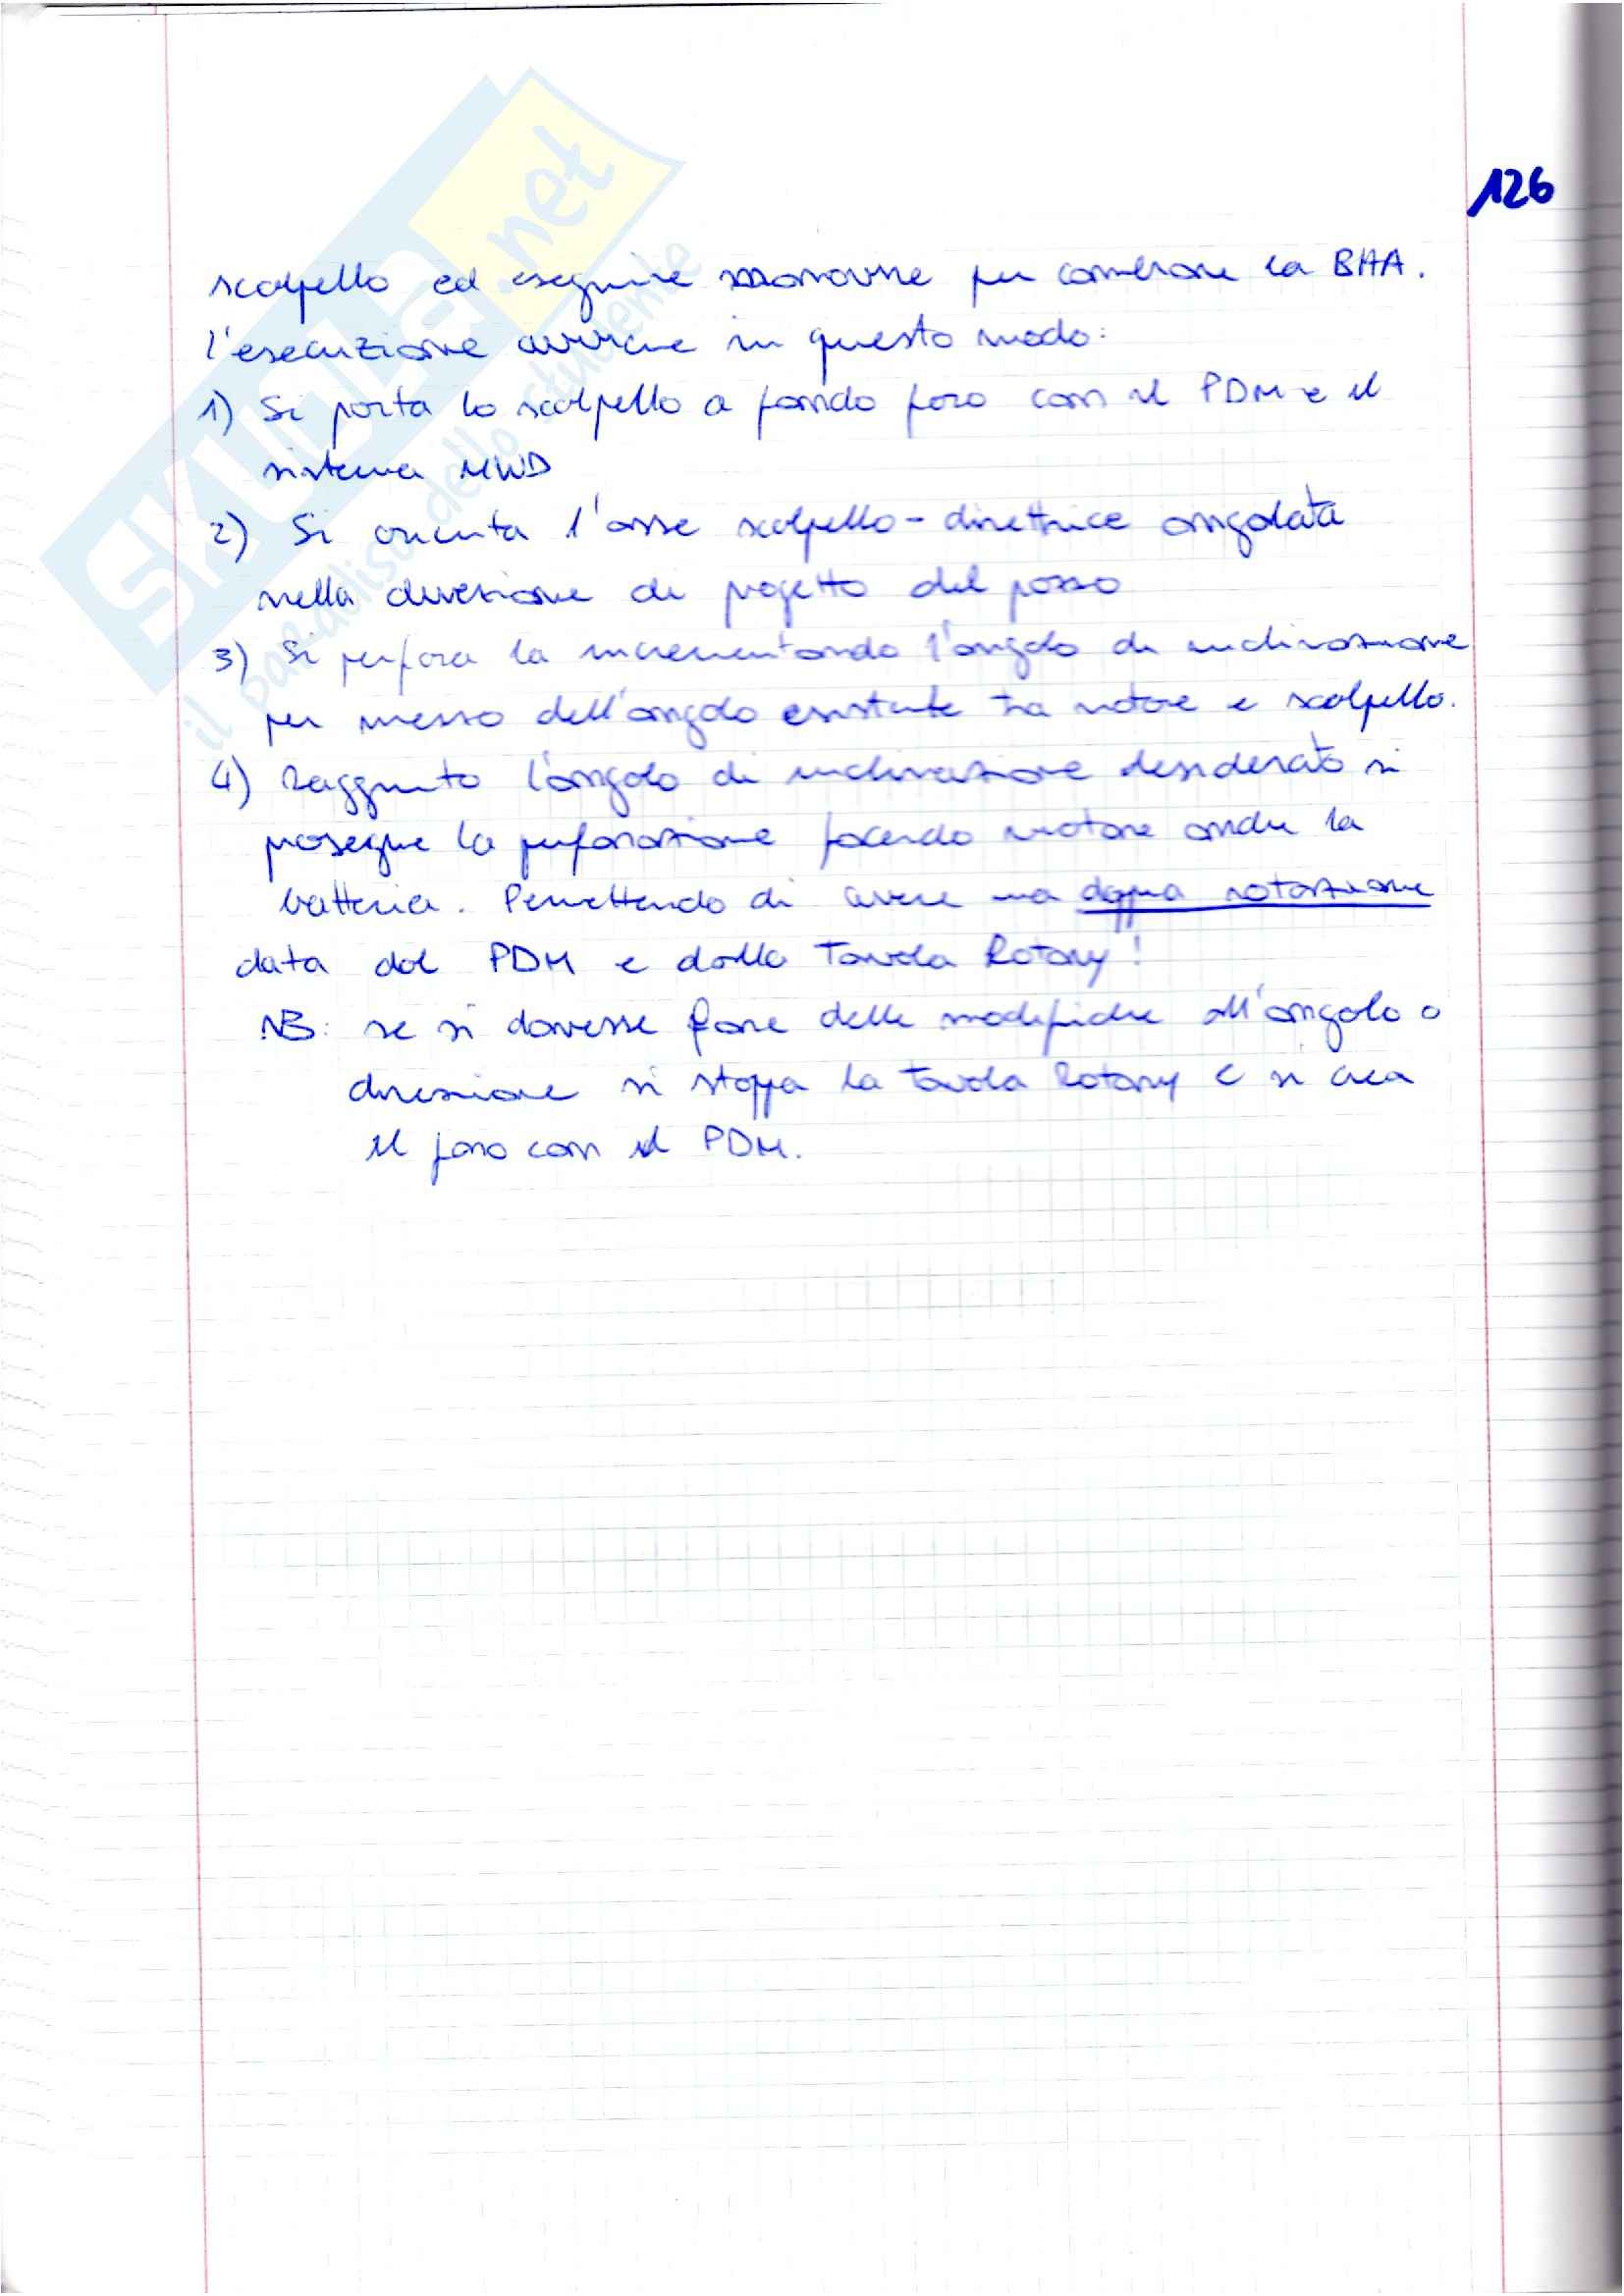 126
scalpello ed eseguire manovre per cambiare la BHA.
l'esecuzione avviene in questo modo:
1) Si porta lo scalpello a fondo foro con il PDM e il
sistema MWD
2) Si orienta l'asse scalpello-direttrice angolata
nella direzione di progetto del pozzo
3) Si perfora la incrementando l'angolo di inclinazione
per mezzo dell'angolo esistente tra motore e scalpello.
4) Raggiunto l'angolo di inclinazione desiderato si
prosegue la perforazione facendo ruotare anche la
batteria. Permettendo di avere una doppia rotazione
data dal PDM e dalla Tavola Rotary!
NB: se si dovesse fare delle modifiche all'angolo o
direzione si stoppa la tavola Rotary e si crea
il foro con il PDM.
SKUOLA.net
il paradiso dello studente